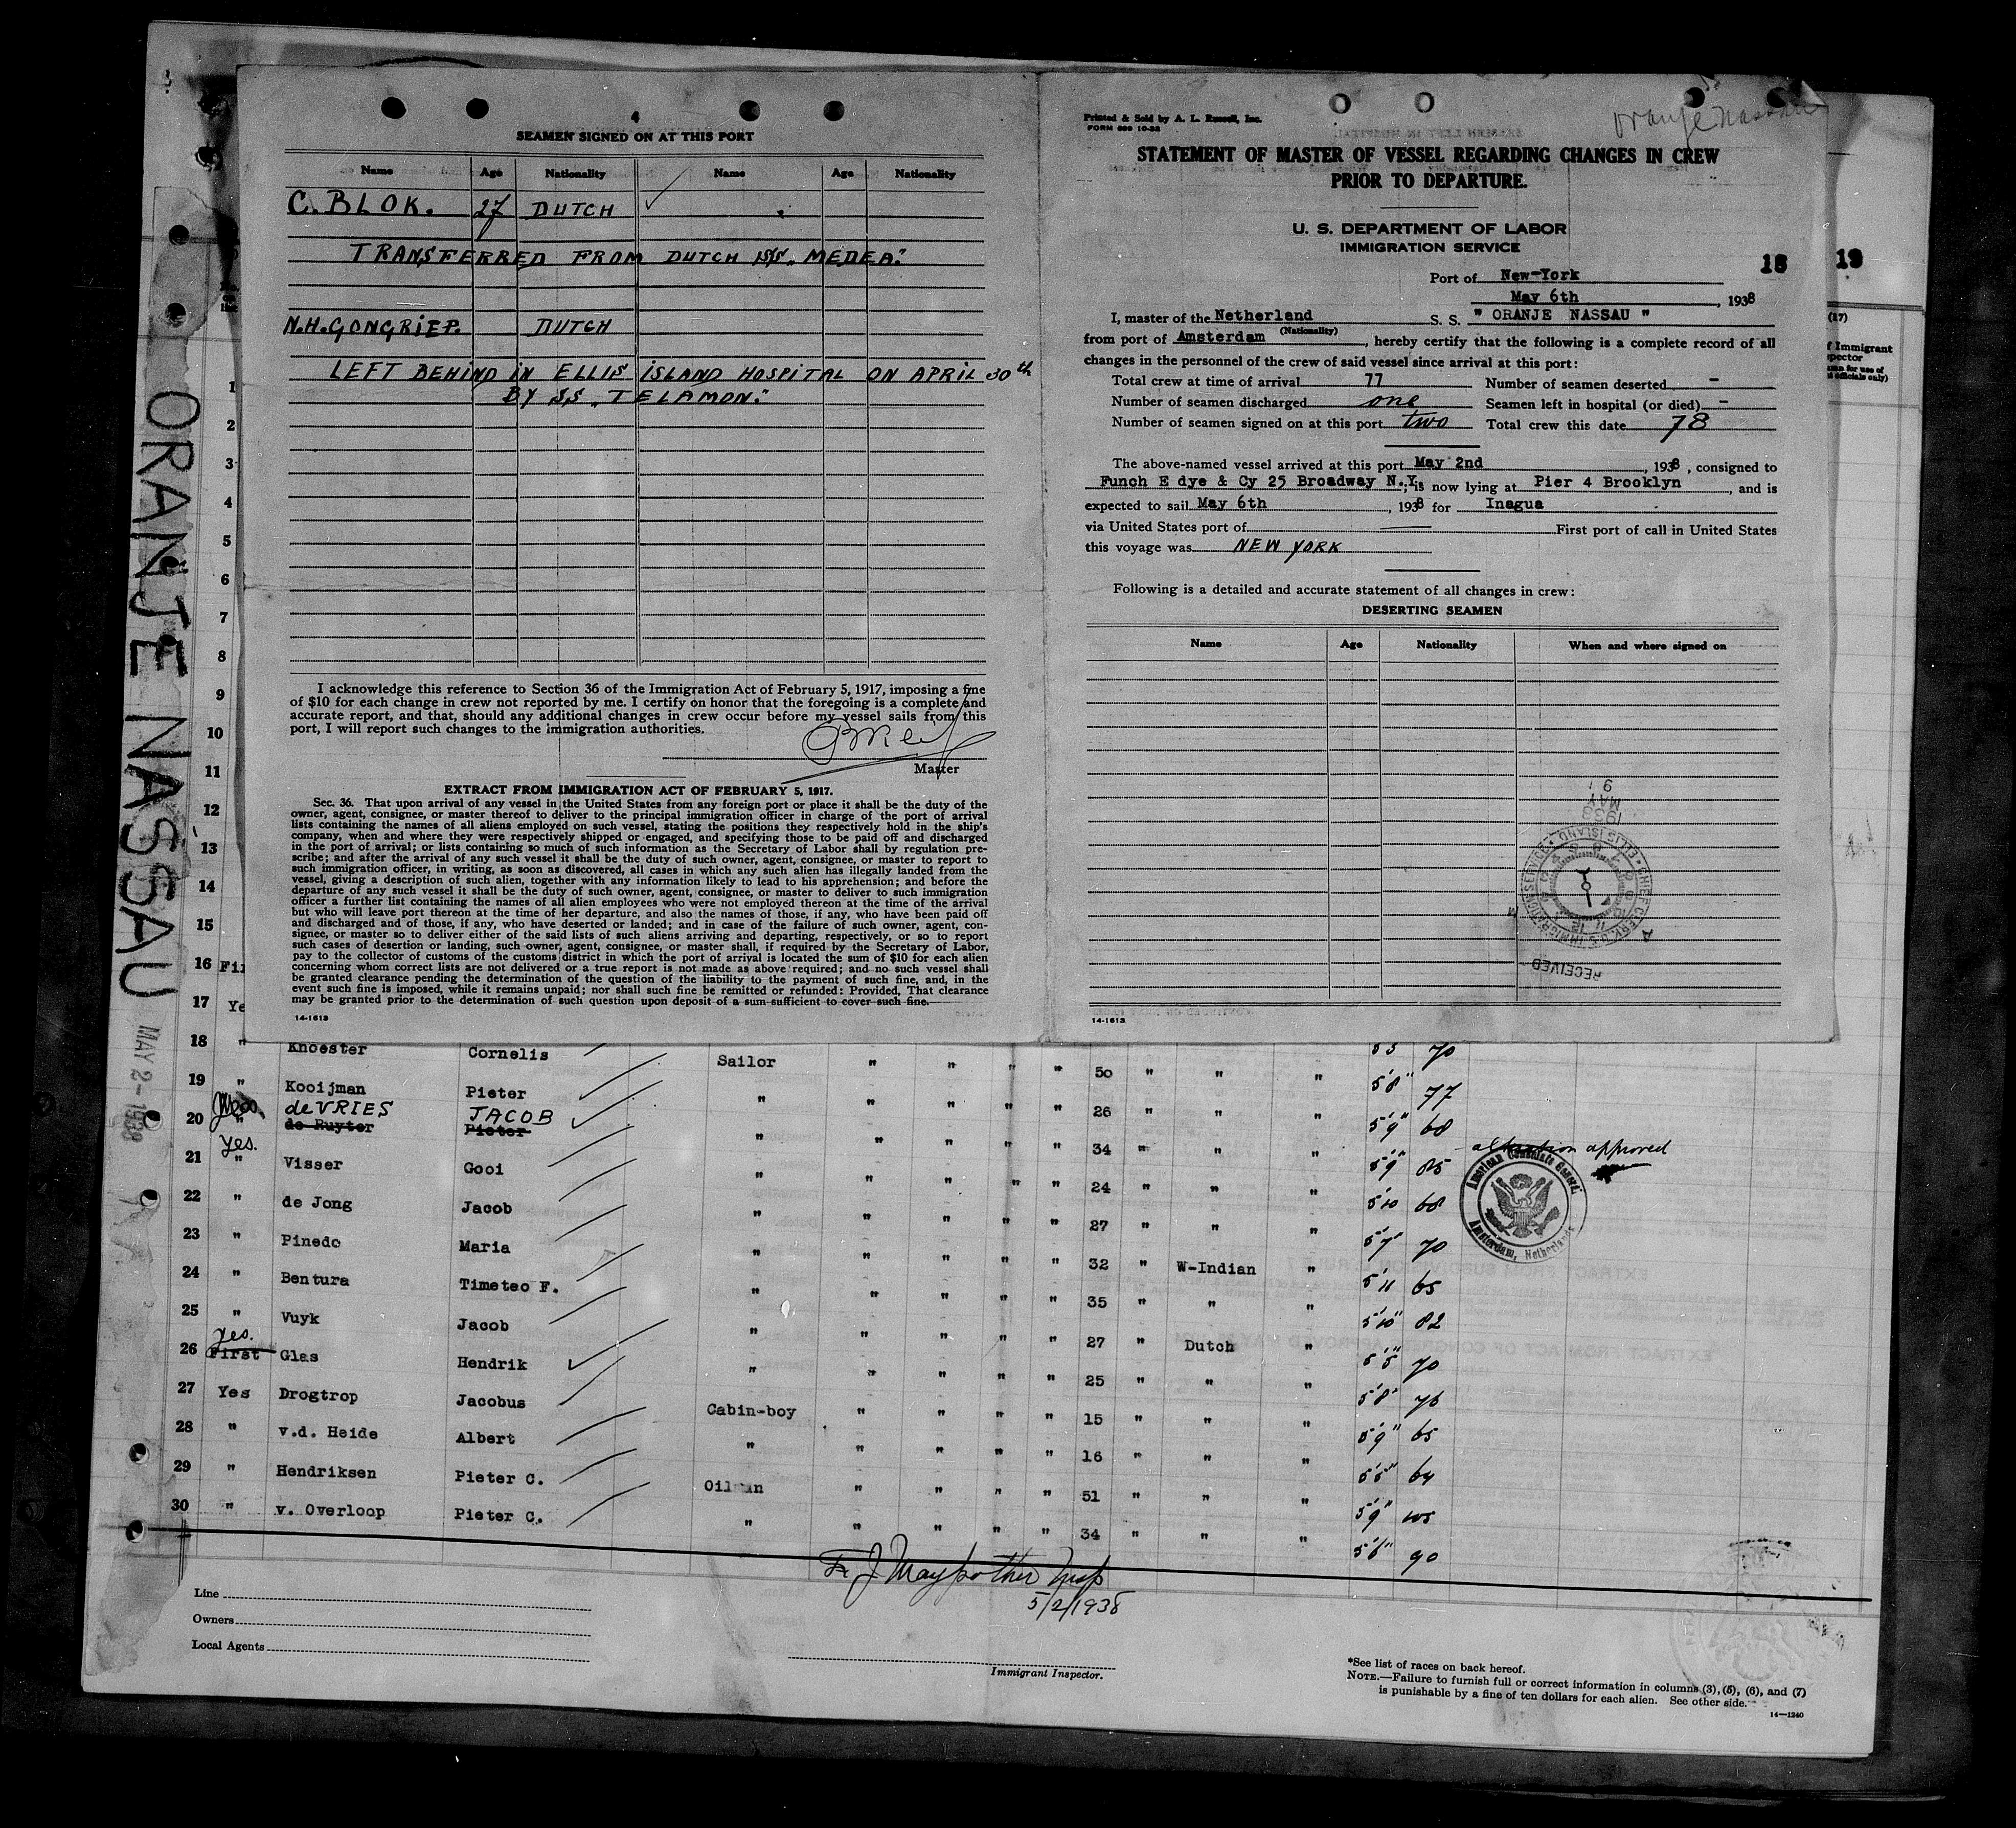 4
SEAMEN SIGNED ON AT THIS PORT
Name Age Nationality Name Age Nationality
C. BLOK. 27 DUTCH
TRANSFERRED FROM DUTCH SS „MEDEA."
N.H. GONGRIEP. DUTCH
LEFT BEHIND IN ELLIS ISLAND HOSPITAL ON APRIL 30th
BY S.S „TELAMON."
I acknowledge this reference to Section 36 of the Immigration Act of February 5, 1917, imposing a fine
of $10 for each change in crew not reported by me. I certify on honor that the foregoing is a complete and
accurate report, and that, should any additional changes in crew occur before my vessel sails from this
port, I will report such changes to the immigration authorities.
Master
EXTRACT FROM IMMIGRATION ACT OF FEBRUARY 5, 1917.
Sec. 36. That upon arrival of any vessel in the United States from any foreign port or place it shall be the duty of the
owner, agent, consignee, or master thereof to deliver to the principal immigration officer in charge of the port of arrival
lists containing the names of all aliens employed on such vessel, stating the positions they respectively hold in the ship's
company, when and where they were respectively shipped or engaged, and specifying those to be paid off and discharged
in the port of arrival; or lists containing so much of such information as the Secretary of Labor shall by regulation pre-
scribe; and after the arrival of any such vessel it shall be the duty of such owner, agent, consignee, or master to report to
such immigration officer, in writing, as soon as discovered, all cases in which any such alien has illegally landed from the
vessel, giving a description of such alien, together with any information likely to lead to his apprehension; and before the
departure of any such vessel it shall be the duty of such owner, agent, consignee, or master to deliver to such immigration
officer a further list containing the names of all alien employees who were not employed thereon at the time of the arrival
but who will leave port thereon at the time of her departure, and also the names of those, if any, who have been paid off
and discharged and of those, if any, who have deserted or landed; and in case of the failure of such owner, agent, con-
signee, or master so to deliver either of the said lists of such aliens arriving and departing, respectively, or so to report
such cases of desertion or landing, such owner, agent, consignee, or master shall, if required by the Secretary of Labor,
pay to the collector of customs of the customs district in which the port of arrival is located the sum of $10 for each alien
concerning whom correct lists are not delivered or a true report is not made as above required; and no such vessel shall
be granted clearance pending the determination of the question of the liability to the payment of such fine, and, in the
event such fine is imposed, while it remains unpaid; nor shall such fine be remitted or refunded: Provided, That clearance
may be granted prior to the determination of such question upon deposit of a sum sufficient to cover such fine.
14-1613
Oranje Nassau
Printed & Sold by A. L. Russell, Inc.
FORM 689 10-32
STATEMENT OF MASTER OF VESSEL REGARDING CHANGES IN CREW
PRIOR TO DEPARTURE.
U. S. DEPARTMENT OF LABOR
IMMIGRATION SERVICE
18
19
Port of New-York
May 6th, 1938
I, master of the Netherland S. S. " ORANJE NASSAU "
(Nationality)
from port of Amsterdam, hereby certify that the following is a complete record of all
changes in the personnel of the crew of said vessel since arrival at this port:
Total crew at time of arrival 77 Number of seamen deserted -
Number of seamen discharged one Seamen left in hospital (or died) -
Number of seamen signed on at this port two Total crew this date 78
The above-named vessel arrived at this port May 2nd, 1938, consigned to
Funch E dye & Cy 25 Broadway N.Y., is now lying at Pier 4 Brooklyn, and is
expected to sail May 6th, 1938 for Inagua
via United States port of First port of call in United States
this voyage was NEW YORK
Following is a detailed and accurate statement of all changes in crew:
DESERTING SEAMEN
Name Age Nationality When and where signed on
1938
MAY
RECEIVED
CHIEF CLERK U.S. IMMIGRATION SERVICE · ELLIS ISLAND
14-1613
(17)
ORANJE NASSAU
MAY 2-1938
1
2
3
4
5
6
7
8
9
10
11
12
13
14
15
16 Fir
17 Ye
18 " Knoester Cornelis Sailor " " " " 50 " " " 5'5 70
19 " Kooijman Pieter " " " " " 26 " " " 5'8" 77
20 " deVRIES JACOB
de Ruyter Pieter " " " " " 34 " " " 5'9" 68
alteration approved
21 yes. " Visser Gooi " " " " " 24 " " " 5'9" 85
22 " de Jong Jacob " " " " " 27 " " " 5'10 68
23 " Pinedo Maria " " " " " 32 " W-Indian " 5'7" 70
24 " Bentura Timeteo F. " " " " " 35 " " " 5'11 65
25 " Vuyk Jacob " " " " " 27 " Dutch " 5'10" 82
26 yes. First Glas Hendrik " " " " " 25 " " " 5'5" 70
27 Yes Drogtrop Jacobus Cabin-boy " " " " 15 " " " 5'8" 76
28 " v.d. Heide Albert " " " " " 16 " " " 5'9" 65
29 " Hendriksen Pieter C. Oilman " " " " 51 " " " 5'5" 64
30 " v. Overloop Pieter C. " " " " " 34 " " " 5'9" 105
5'6" 90
American Consulate General
Amsterdam, Netherlands
F. J Maypother Insp
5/2/1938
Line
Owners
Local Agents
Immigrant Inspector.
*See list of races on back hereof.
NOTE.—Failure to furnish full or correct information in columns (3), (5), (6), and (7)
is punishable by a fine of ten dollars for each alien. See other side.
14—1240